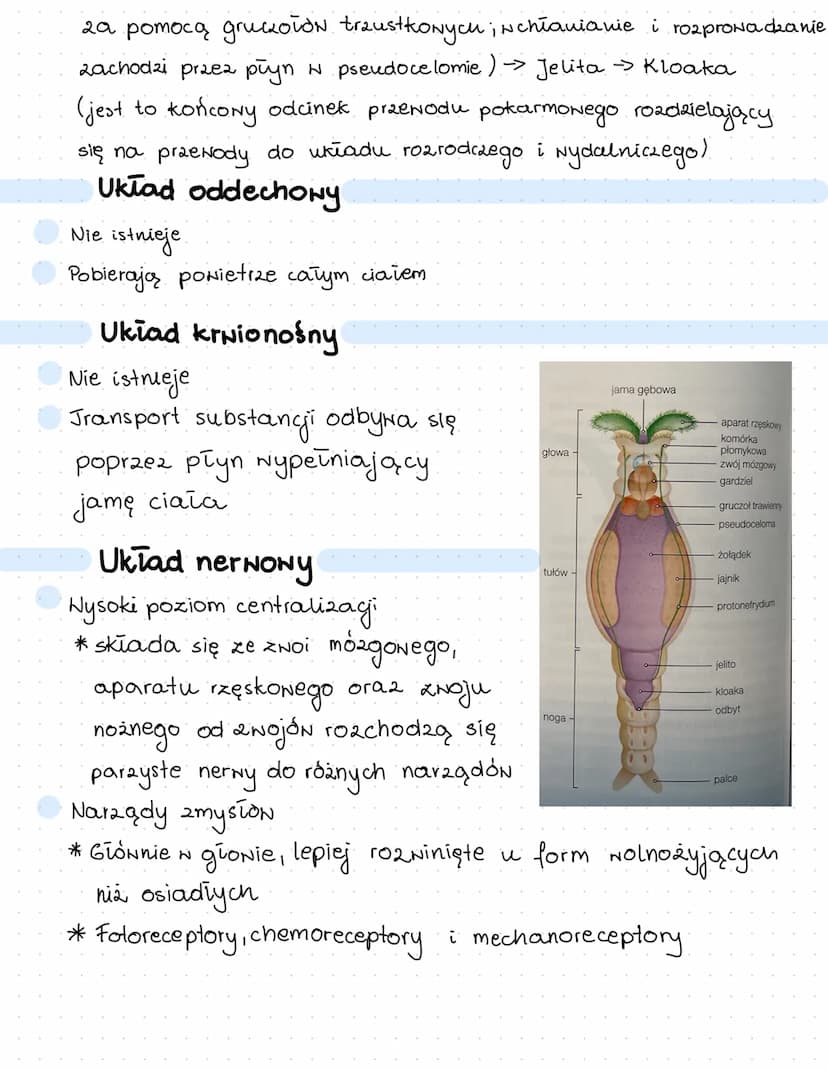 za pomocą gruczołów trzustkowych; wchłanianie i rozprowadzanie
zachodzi przez płyn w pseudocelomie) → Jelita → Kloaka
(jest to końcowy odcinek przewodu pokarmowego rozdzielający
się na przewody do układu rozrodczego i wydalniczego)
Układ oddechowy
Nie istnieje
Pobierają powietrze całym ciałem
Układ krwionośny
Nie istnieje
Transport substancji odbywa się
poprzez płyn wypełniający
jamę ciała
Układ nerwowy
Wysoki poziom centralizacji
* składa się ze zwoi mózgowego,
aparatu rzęskowego oraz zwoju
nożnego od zwojów rozchodzą się
parzyste nerwy do różnych narządów
Narządy zmysłów
* Głównie w głowie, lepiej rozwinięte u form wolnożyjących
niż osiadłych
* Fotoreceptory, chemoreceptory i mechanoreceptory
jama gębowa
głowa
tułów
noga
aparat rzęskowy
komórka
płomykowa
zwój mózgowy
gardziel
gruczoł trawienny
pseudoceloma
żołądek
jajnik
protonefrydium
jelito
kloaka
odbyt
palce